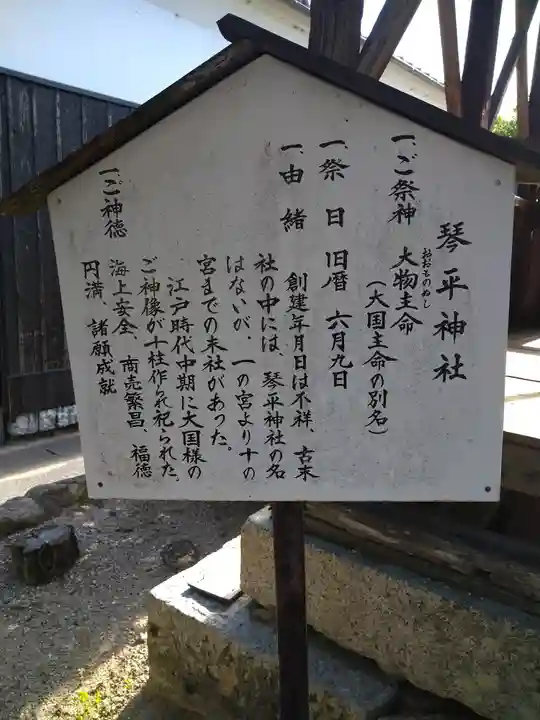 琴平神社
一、ご祭神 大物主命
おおものぬし
(大国主命の別名)
一、祭日 旧暦 六月九日
一、由緒 創建年月日は不祥、古末
社の中には、琴平神社の名
はないが、一の宮より十の
宮までの末社があった。
江戸時代中期に大国様の
ご神像が十柱作られ祀られた。
一、ご神徳 海上安全、商売繁昌、福徳
円満、諸願成就